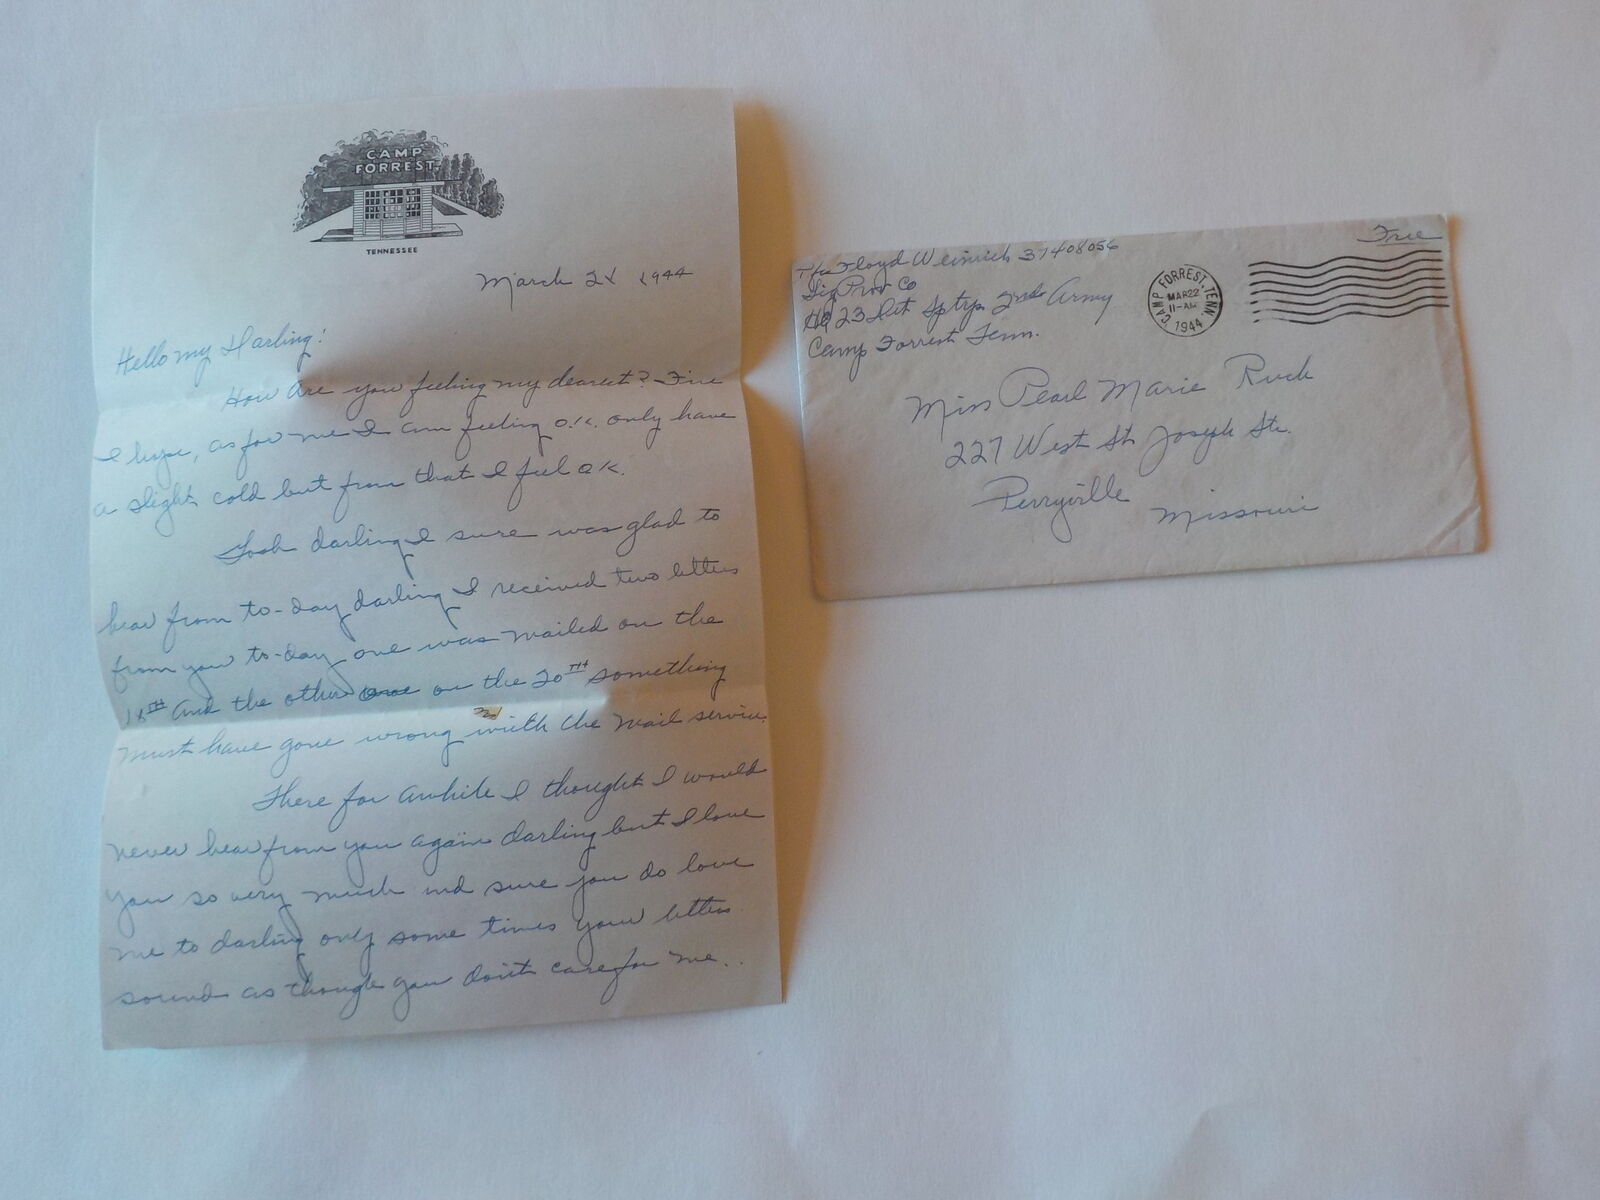 CAMP
FORREST
TENNESSEE
March 21 1944
Hello my Darling!
How are you feeling my dearest? Fine
I hope, as for me I am feeling O.K. only have
a slight cold but from that I feel OK.
Gosh darling I sure was glad to
hear from to-day darling I received two letters
from you to-day one was mailed on the
18TH and the other one on the 20TH something
must have gone wrong with the mail service.
There for awhile I thought I would
never hear from you again darling but I love
you so very much and sure you do love
me to darling only some times your letters
sound as though you don't care for me..
Pfc Floyd Weinrich 37408056
Sig Prov Co
Hq 23 Det Sp trps 2nd Army
Camp Forrest Tenn.
Free
CAMP FORREST, TENN.
MAR 22
11-AM
1944
Miss Pearl Marie Ruch
227 West St Joseph Str.
Perryville Missouri